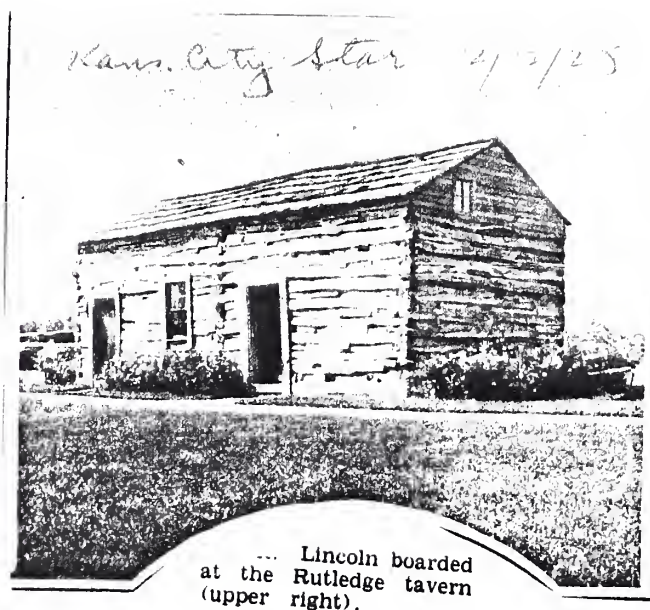 Kans. City Star
... Lincoln boarded
at the Rutledge tavern
(upper right).